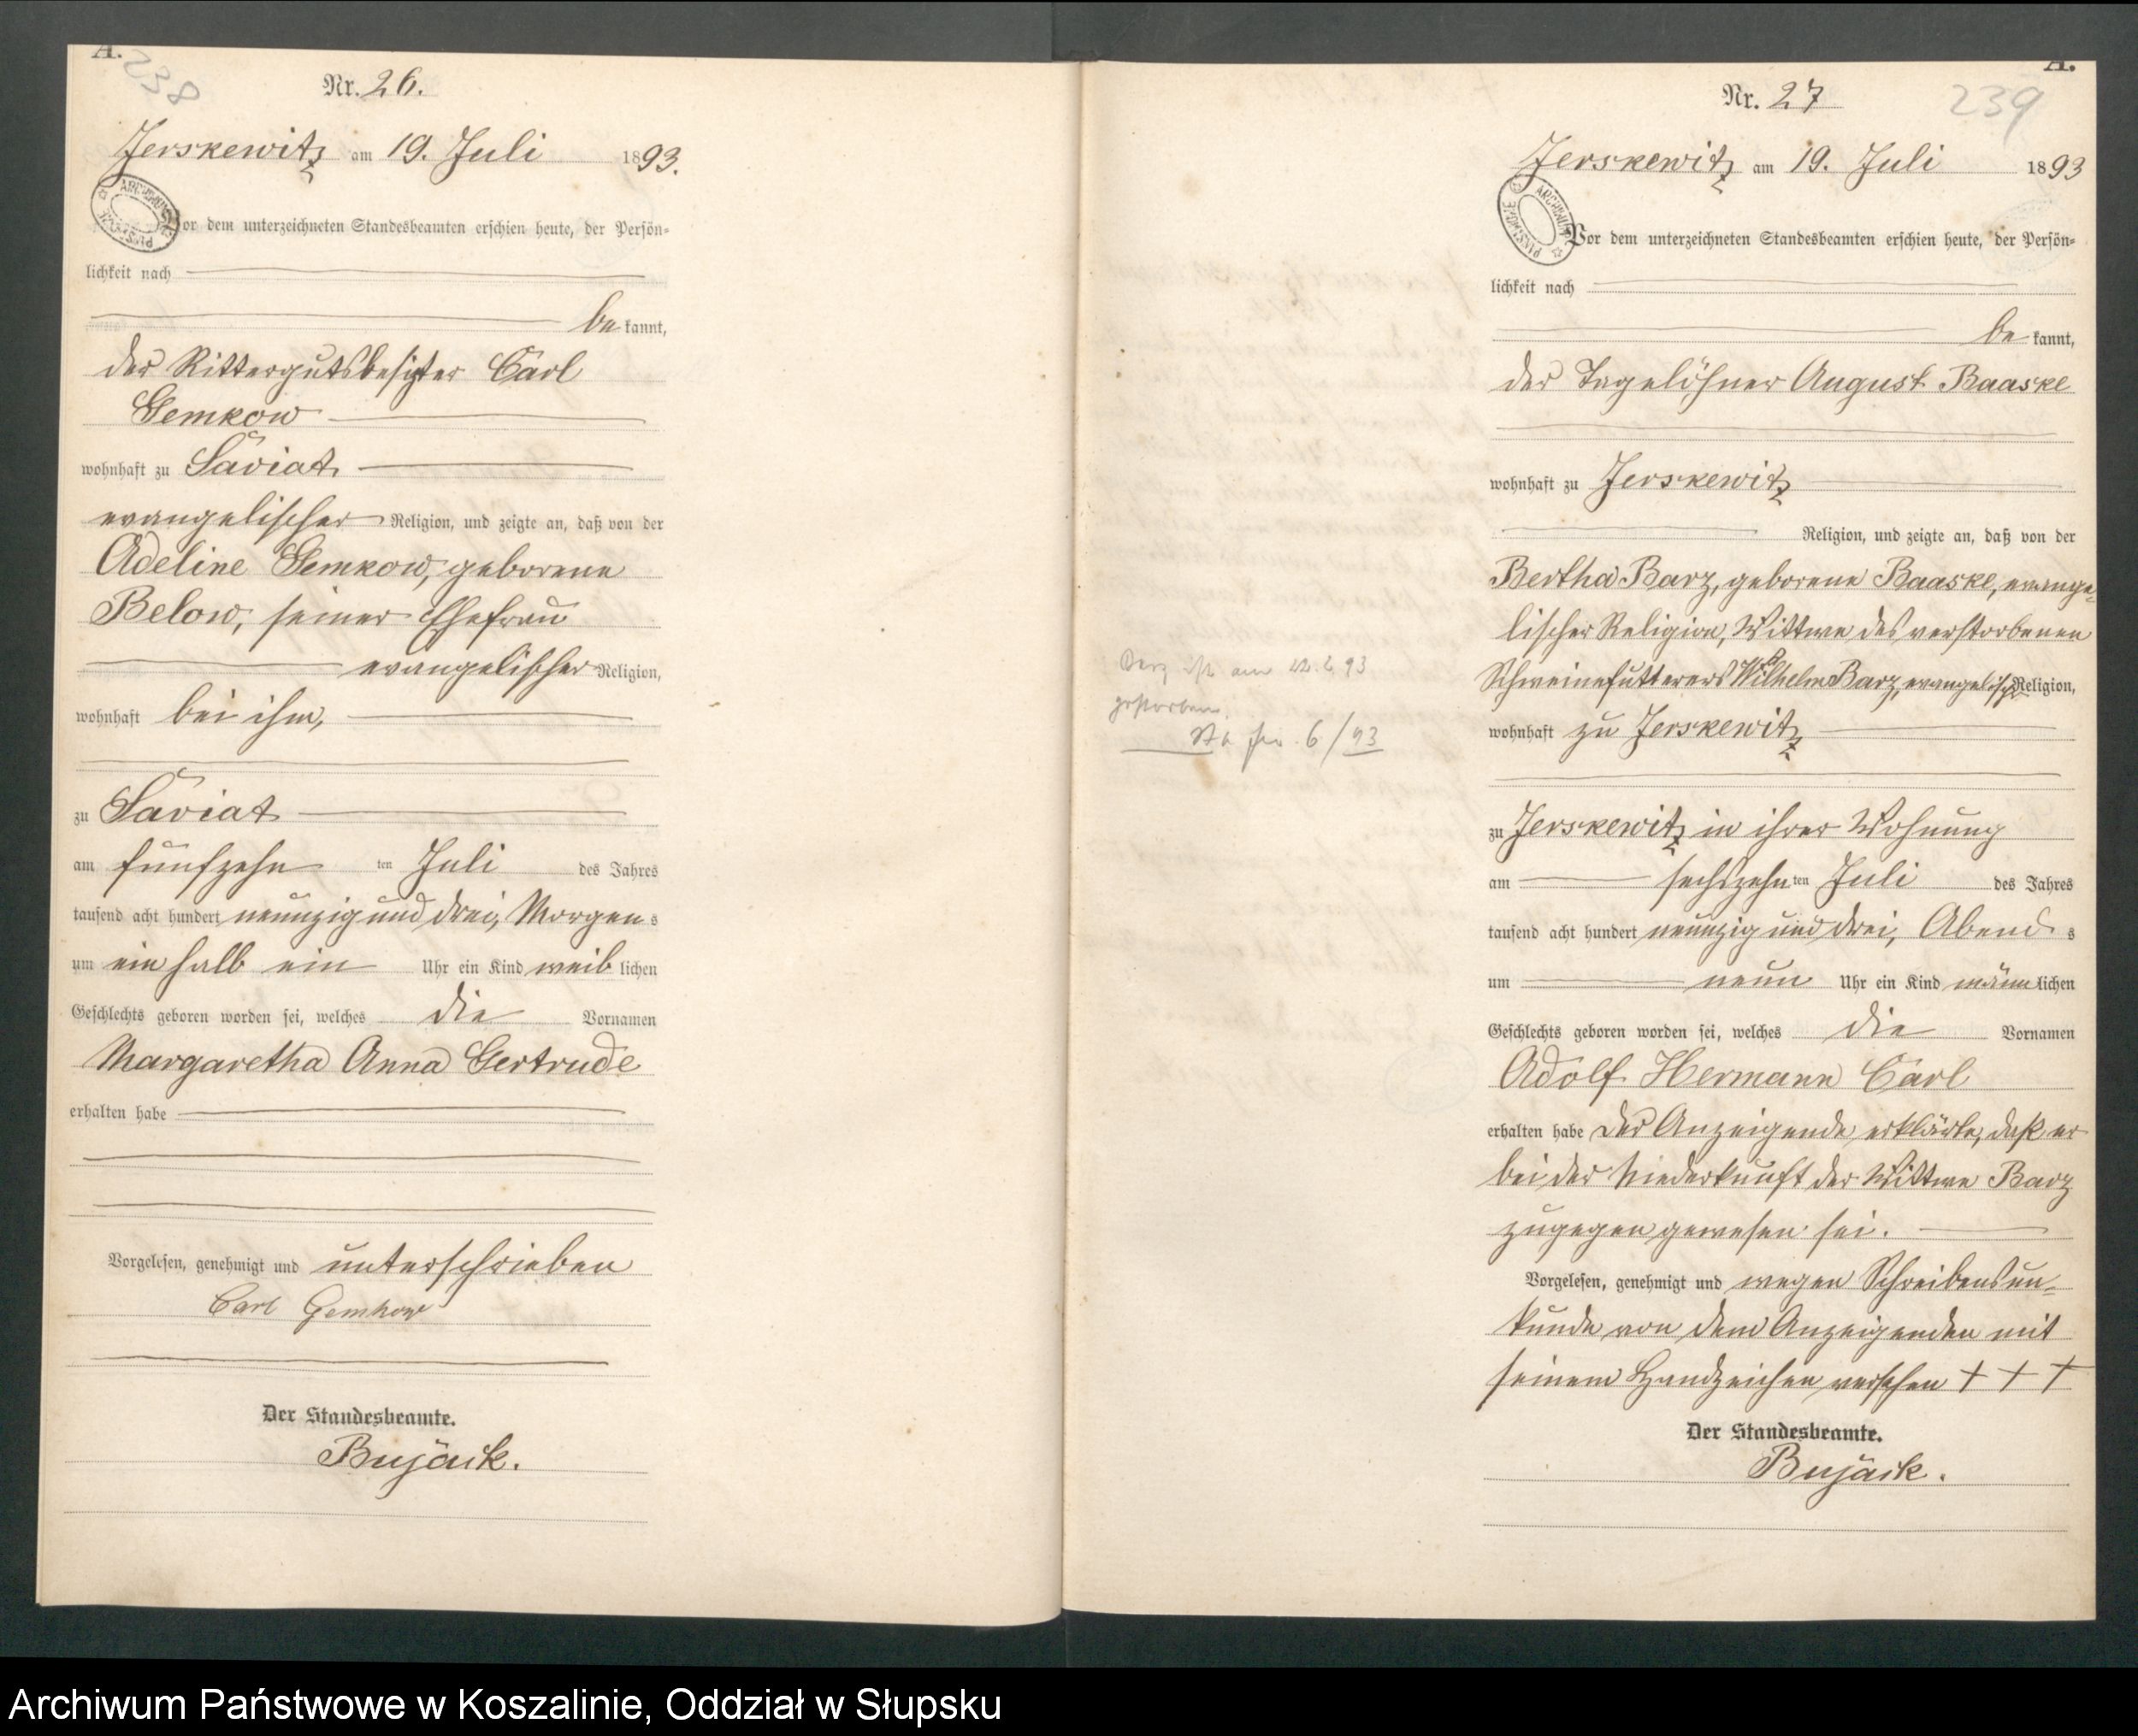 A.
238
Nr. 26.
Jerskewitz am 19. Juli 1893.
Vor dem unterzeichneten Standesbeamten erschien heute, der Persön-
lichkeit nach
be kannt,
der Rittergutsbesitzer Carl
Gemkow
wohnhaft zu Saviat
evangelischer Religion, und zeigte an, daß von der
Adeline Gemkow, geborene
Below, seiner Ehefrau
evangelischer Religion,
wohnhaft bei ihm,
zu Saviat
am fünfzehn ten Juli des Jahres
tausend acht hundert neunzig und drei, Morgen s
um ein halb ein Uhr ein Kind weib lichen
Geschlechts geboren worden sei, welches die Vornamen
Margaretha Anna Gertrude
erhalten habe
Vorgelesen, genehmigt und unterschrieben
Carl Gemkow
Der Standesbeamte.
Bujack.
A.
239
Nr. 27
Jerskewitz am 19. Juli 1893
Vor dem unterzeichneten Standesbeamten erschien heute, der Persön-
lichkeit nach
be kannt,
der Tagelöhner August Baaske
wohnhaft zu Jerskewitz
Religion, und zeigte an, daß von der
Bertha Barz, geborene Baaske, evange-
lischer Religion, Wittwe des verstorbenen
Schweinefutterers Wilhelm Barz, evangelisch Religion,
wohnhaft zu Jerskewitz
zu Jerskewitz in ihrer Wohnung
am sechszehn ten Juli des Jahres
tausend acht hundert neunzig und drei, Abend s
um neun Uhr ein Kind männ lichen
Geschlechts geboren worden sei, welches die Vornamen
Adolf Hermann Carl
erhalten habe Der Anzeigende erklärte, daß er
bei der Niederkunft der Wittwe Barz
zugegen gewesen sei.
Vorgelesen, genehmigt und wegen Schreibensun-
kunde von dem Anzeigenden mit
seinem Handzeichen versehen + + +
Der Standesbeamte.
Bujack.
Barz ist am 22.2.93
gestorben.
6/93
Archiwum Państwowe w Koszalinie, Oddział w Słupsku